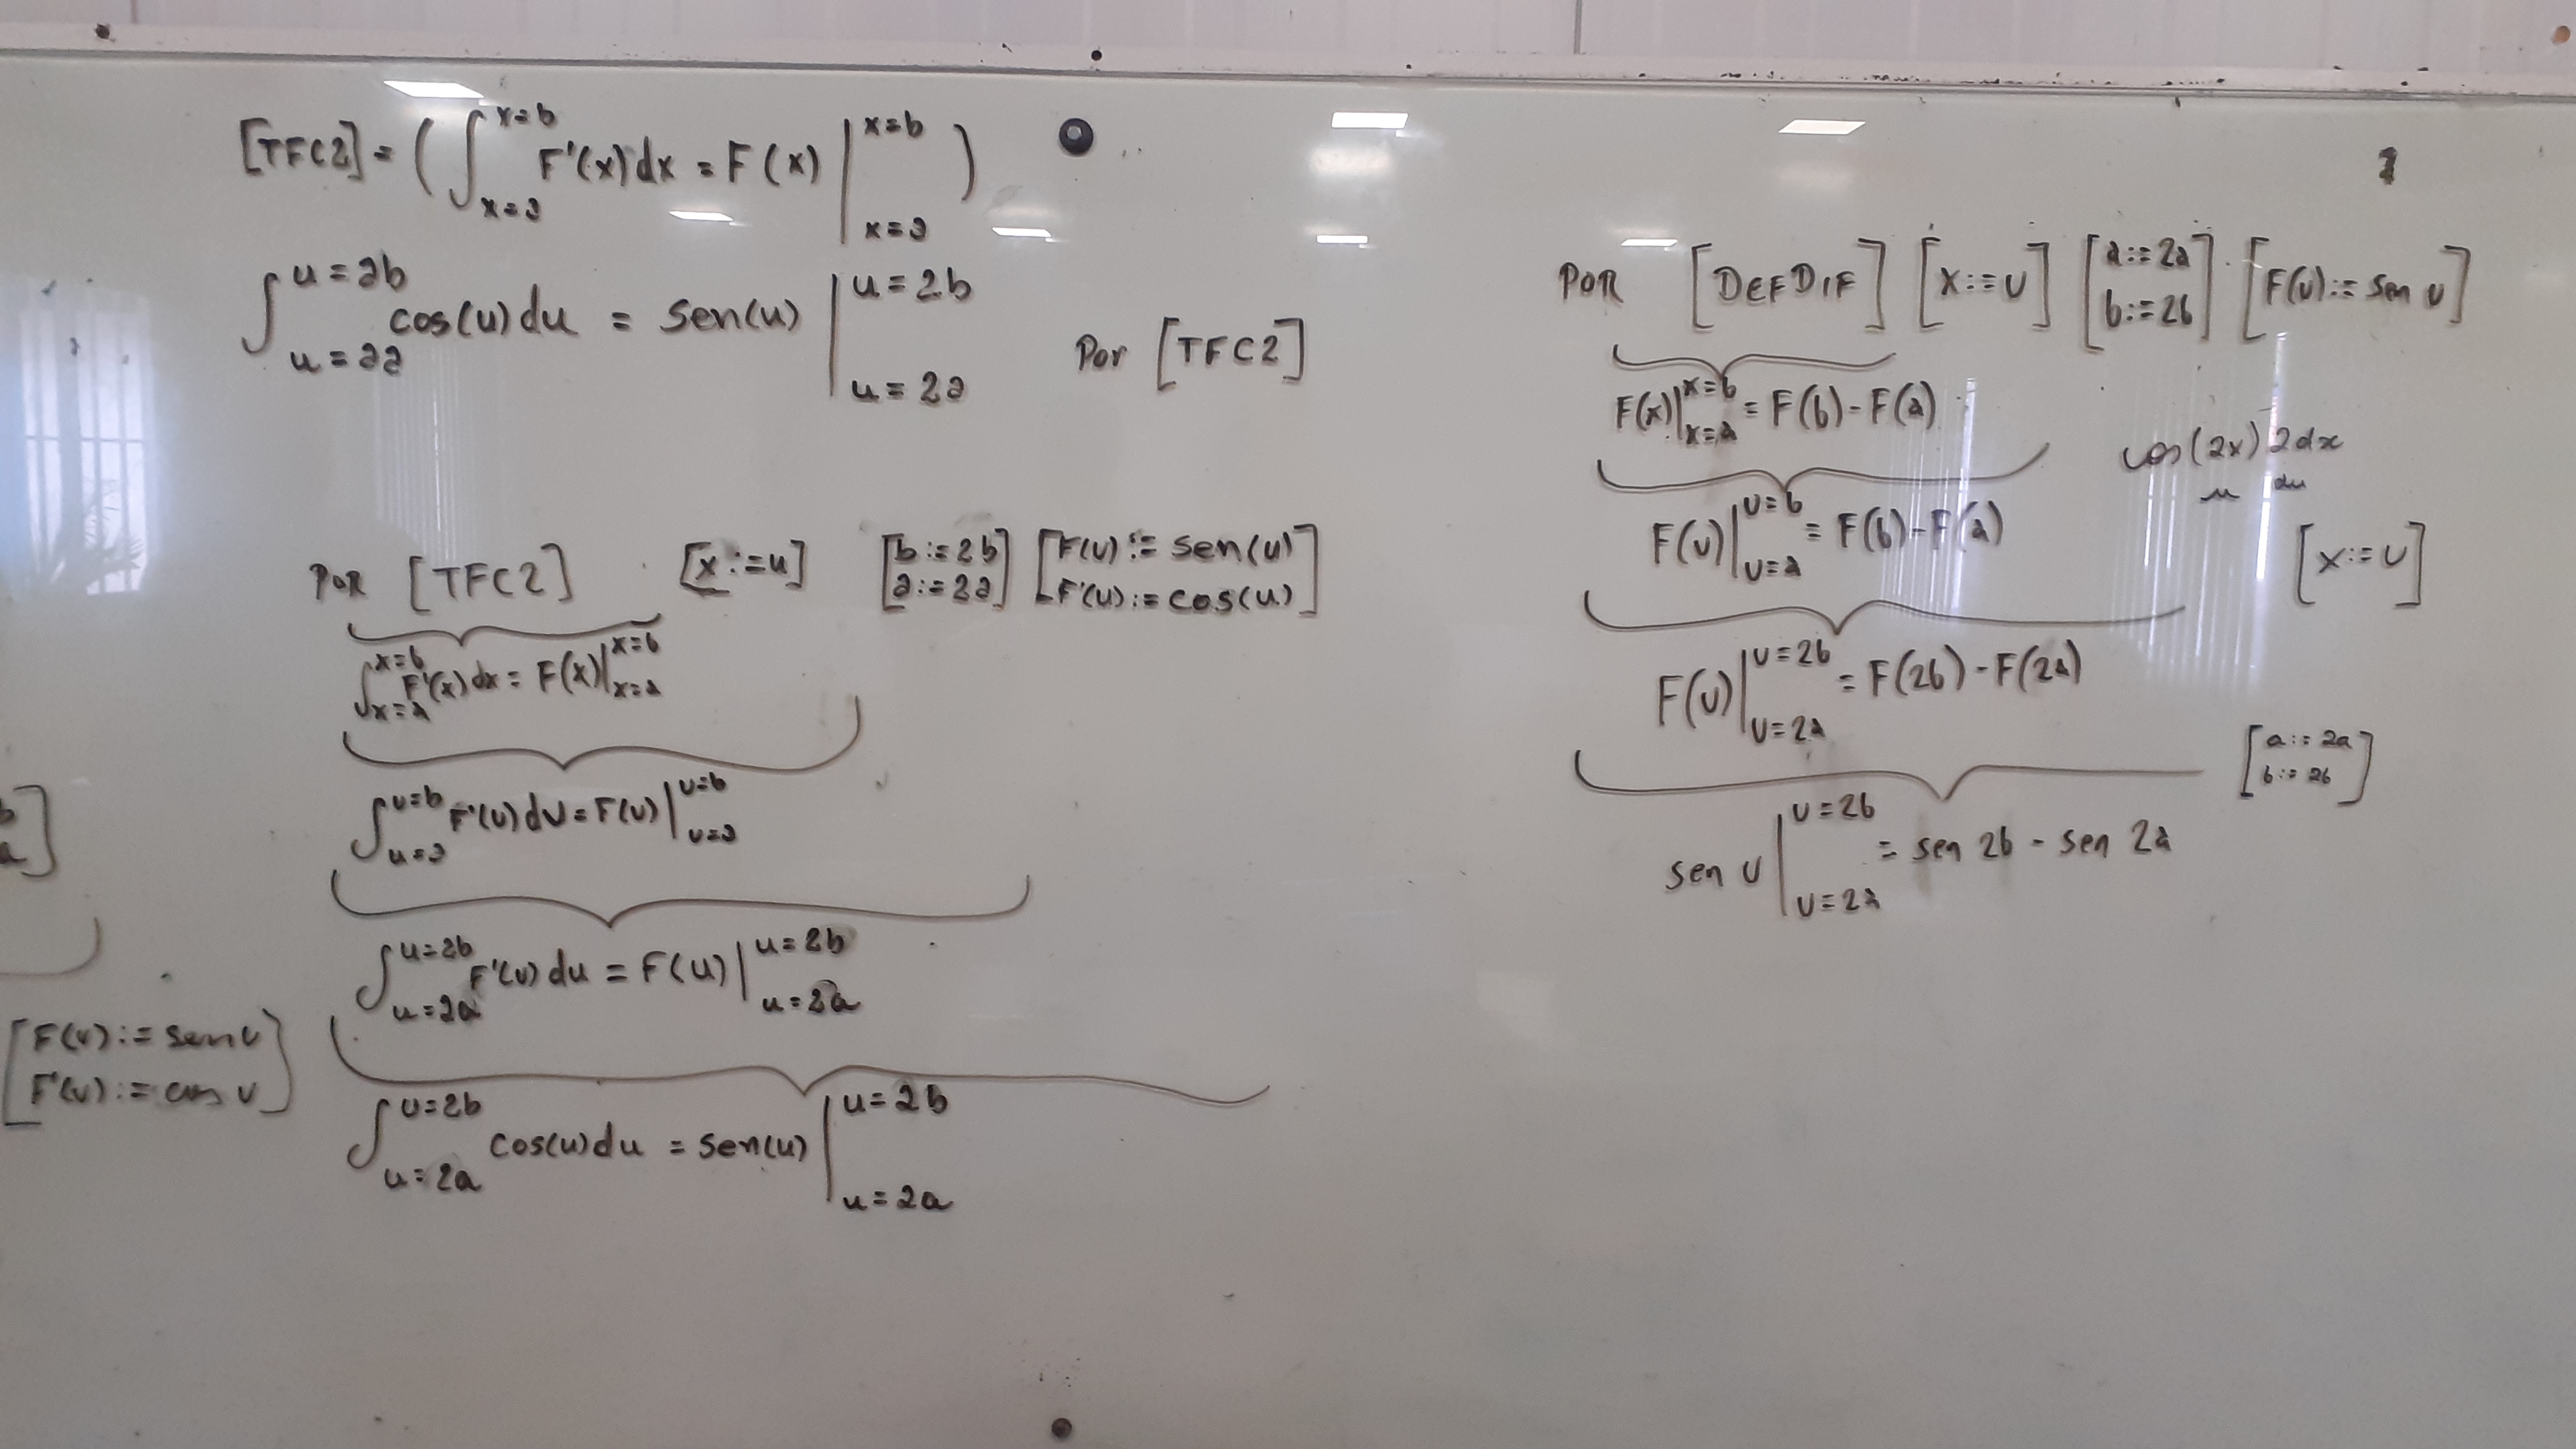 [TFC2] = ( ∫_{x=a}^{x=b} F'(x) dx = F(x) |_{x=a}^{x=b} )
∫_{u=2a}^{u=2b} cos(u) du = sen(u) |_{u=2a}^{u=2b} Por [TFC2]
POR [TFC2] [x:=u] [b:=2b a:=2a] [F(u):= sen(u) F'(u):= cos(u)]
∫_{x=a}^{x=b} F'(x) dx = F(x) |_{x=a}^{x=b}
∫_{u=a}^{u=b} F'(u) du = F(u) |_{u=a}^{u=b}
∫_{u=2a}^{u=2b} F'(u) du = F(u) |_{u=2a}^{u=2b}
∫_{u=2a}^{u=2b} cos(u) du = sen(u) |_{u=2a}^{u=2b}
b
a]
[F(u):= sen u
F'(u):= cos u]
POR [DEFDIF] [x:=u] [a:=2a b:=2b] [F(u):= sen u]
F(x) |_{x=a}^{x=b} = F(b) - F(a)
cos(2x) 2dx
u du
F(u) |_{u=a}^{u=b} = F(b) - F(a) [x:=u]
F(u) |_{u=2a}^{u=2b} = F(2b) - F(2a)
[a:=2a
b:=2b]
sen u |_{u=2a}^{u=2b} = sen 2b - sen 2a